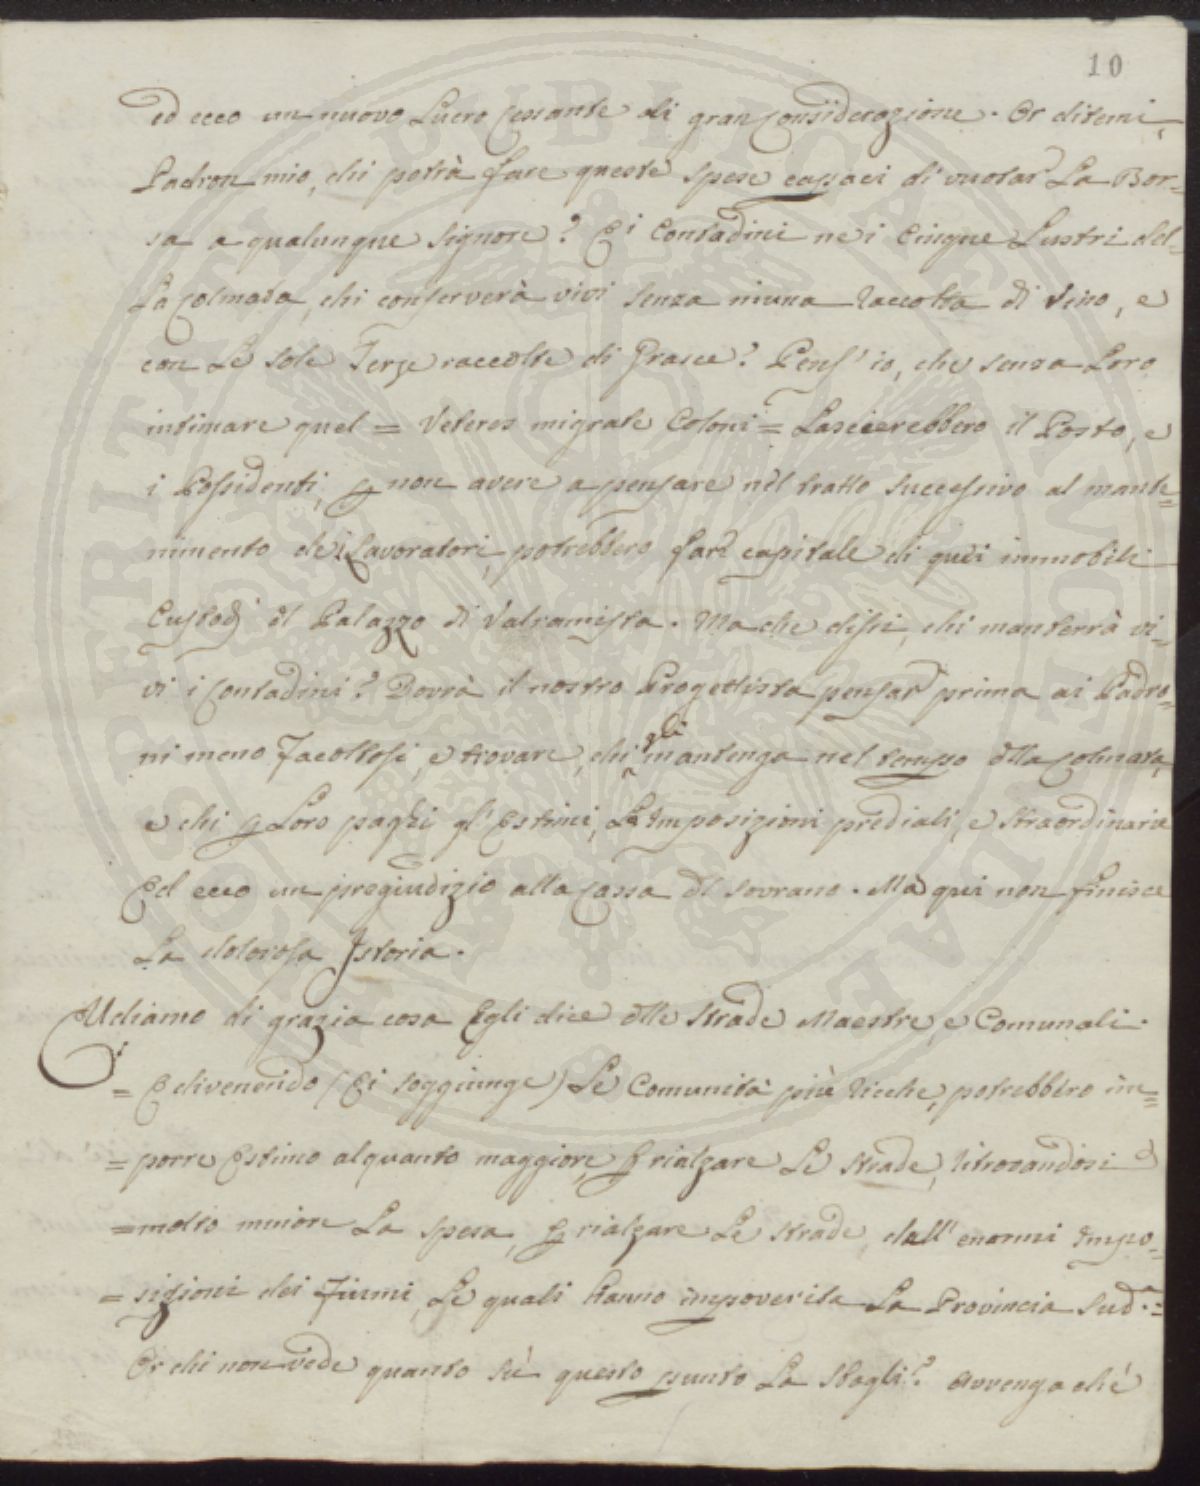 10
ed ecco un nuovo Lucro Cessante di gran Considerazione. Or ditemi,
Padron mio, chi potrà fare queste spese capaci di vuotar La Bor=
sa a qualunque Signore? E i Contadini ne i Cinque Lustri del=
La Colmata, chi conserverà vivi senza niuna Raccolta di Vino, e
con Le sole Terze raccolte di Grasce? Pens' io, che senza Loro
intimare quel = Veteres migrate Coloni = Lascierebbero il Posto, e
i Possidenti, p non avere a pensare nel tratto successivo al mante=
nimento dei Lavoratori, potrebbero fare capitale di quei immobili
Custodi dl Palazzo di Valtramista. Ma che dissi, chi manterrà vi=
vi i Contadini? Dovrà il nostro Progettista pensar prima ai Padro=
ni meno facoltosi, e trovare, chi gli mantenga nel tempo dlla Colmata,
e chi p Loro paghi gl' Estimi, Le Imposizioni prediali, e straordinarie
Ed ecco un pregiudizio alla Cassa dl Sovrano. Ma qui non finisce
La dolorosa Istoria.
Udiamo di grazia cosa Egli dice dlle Strade Maestre, e Comunali.
= E divenendo (Ei soggiunge) Le Comunità più Ricche, potrebbero im=
= porre Estimo alquanto maggiore, p rialzare Le Strade, ritrovandosi
= molto minore La spesa, p rialzare Le Strade, dall' enormi Impo=
= sizioni dei Fiumi, Le quali hanno impoverita La Provincia sudª. =
Or chi non vede quanto sù questo punto La sbagli? Avvenga chè